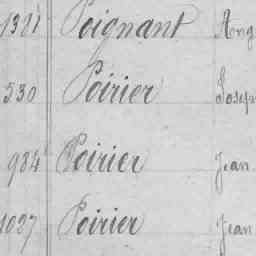 1381 Poignant Aug
530 Poirier Josep
984 Poirier Jean
1027 Poirier Jean